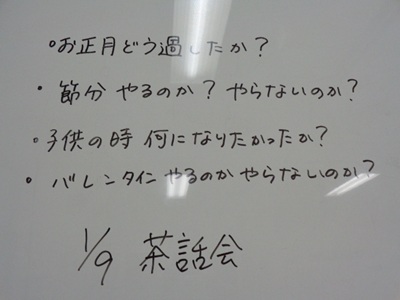 ・お正月どう過したか?
・節分 やるのか? やらないのか?
・子供の時 何になりたかったか?
・バレンタイン やるのか やらないのか?
1/9 茶話会